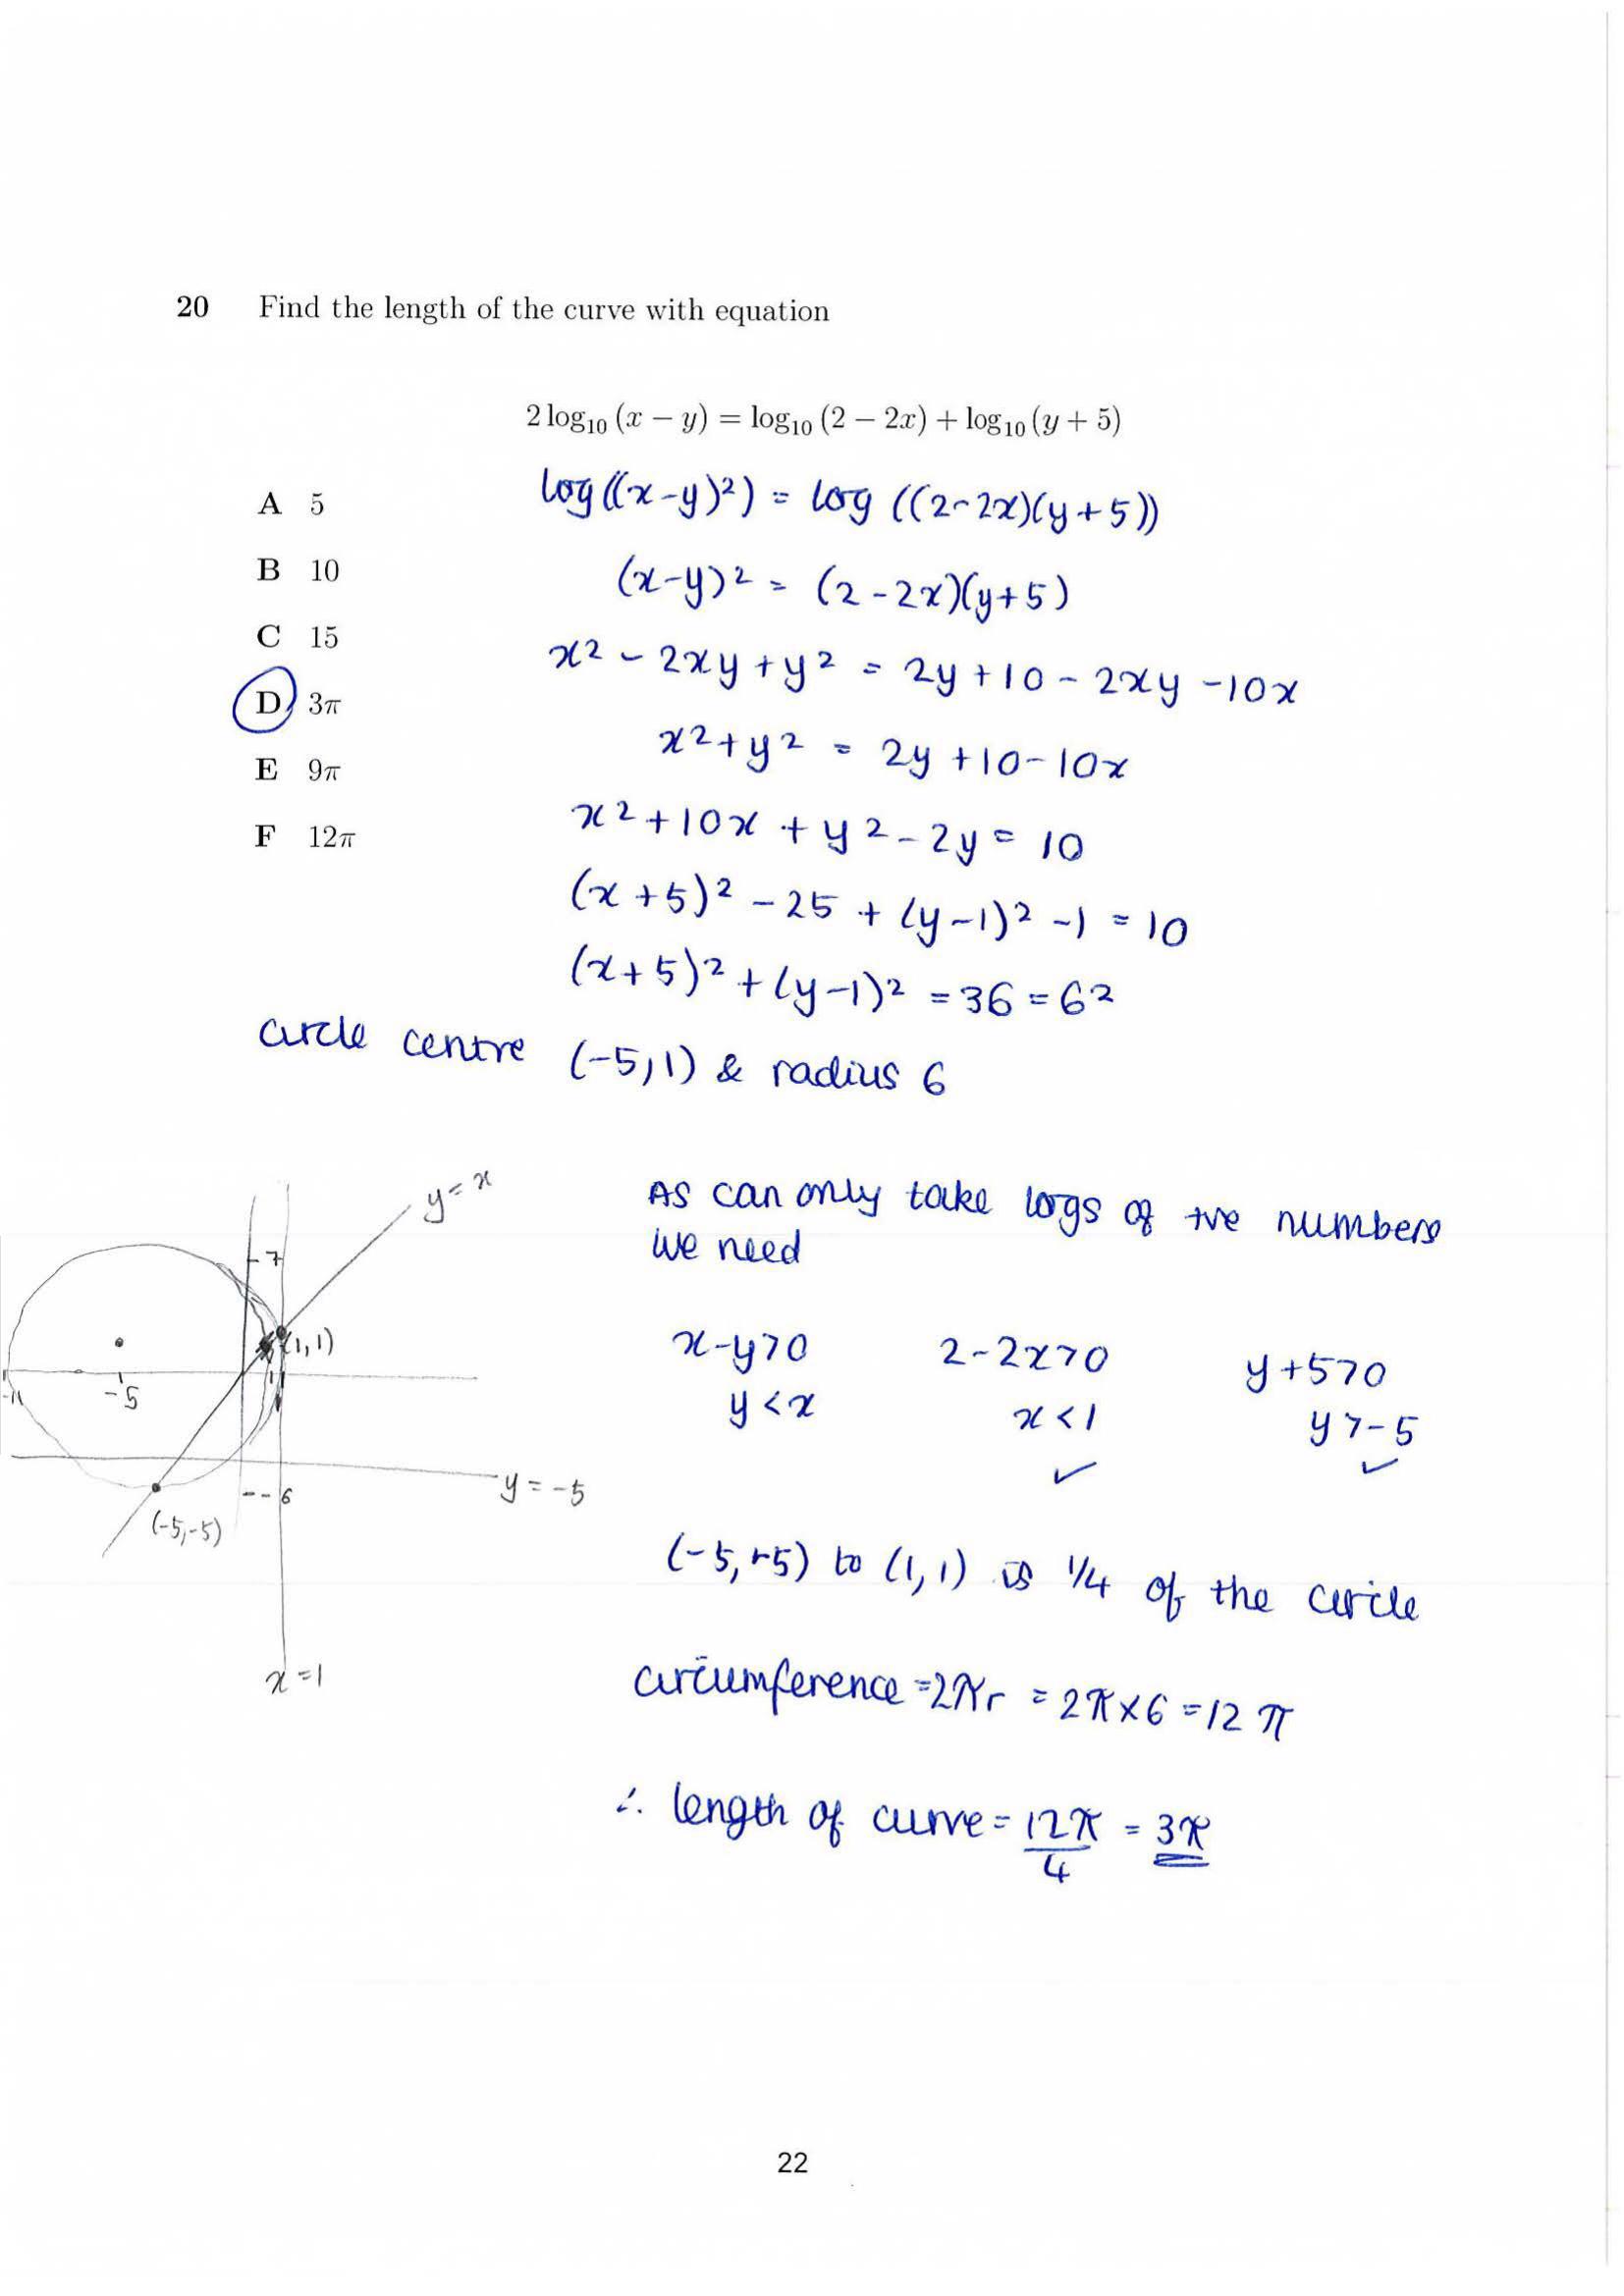 20 Find the length of the curve with equation
2 log₁₀ (x − y) = log₁₀ (2 − 2x) + log₁₀ (y + 5)
A 5
B 10
C 15
D 3π
E 9π
F 12π
log((x-y)²) = log ((2-2x)(y+5))
(x-y)² = (2-2x)(y+5)
x² - 2xy + y² = 2y + 10 - 2xy - 10x
x² + y² = 2y + 10 - 10x
x² + 10x + y² - 2y = 10
(x+5)² - 25 + (y-1)² - 1 = 10
(x+5)² + (y-1)² = 36 = 6²
circle centre (-5,1) & radius 6
y = x
7
(1,1)
-11
-5
1
y = -5
-6
(-5,-5)
x = 1
As can only take logs of +ve numbers
we need
x-y>0 2-2x>0 y+5>0
y<x x<1 y>-5
✓ ✓
(-5,-5) to (1,1) is 1/4 of the circle
circumference = 2πr = 2π×6 = 12π
∴ length of curve = 12π/4 = 3π
22